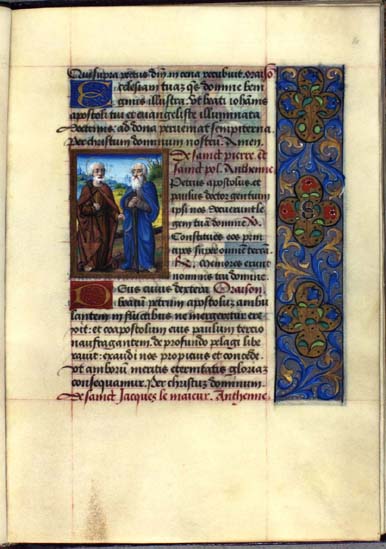 Qui supra pectus dñi in cena recubuit. oraison
Ecclesiam tuam q̃s domine beni
gnus illustra. Vt beati iohãnis
apostoli tui et euangeliste illuminata
doctrinis. ad dona perueniat sempiterna.
Per christum dominum nostrũ. Amen.
De sainct pierre et
sainct pol. Anthenne.
Petrus apostolus et
paulus doctor gentium
ipsi nos docuerunt le
gem tuã dominẽ. V̷.
Constitues eos prin
cipes super omnem terrã.
R̷. Memores erunt
nominis tui domine.
Deus cuius dextera Oraison
beatũ petrum apostolũ ambu
lantem in fluctibus ne mergeretur ere
xit: et coapostolum eius paulum tercio
naufragantem. de profundo pelagi libe
rauit: exaudi nos propicius et concede.
Vt amborũ meritis eternitatis gloriaz
consequamur. Per christũ dominum.
De sainct Jacques le maieur. Anthenne.